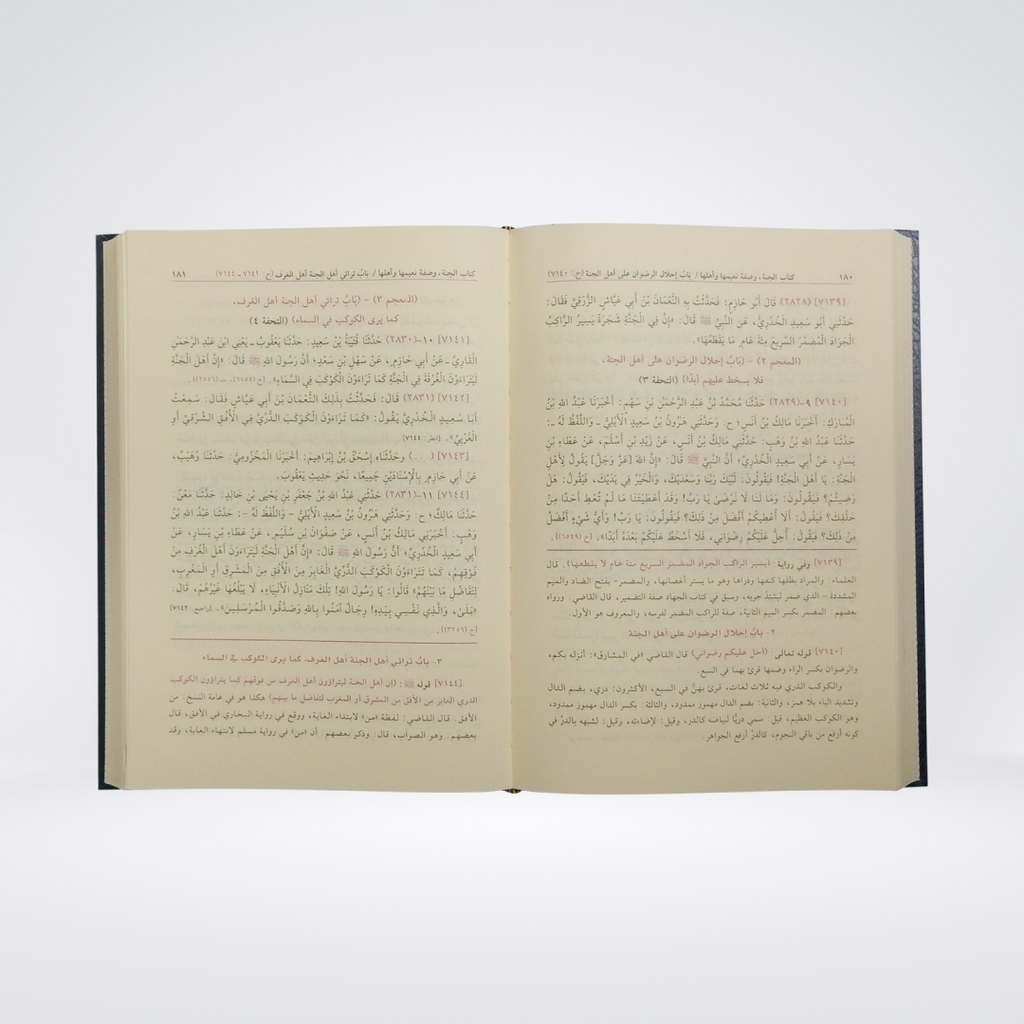 ١٨٠ كتاب الجنة، وصفة نعيمها وأهلها / بَابُ إحلال الرضوان على أهل الجنة (ح: ٧١٤٠)
[٧١٣٩] (٢٨٢٨) قَالَ أَبُو حَازِمٍ: فَحَدَّثْتُ بِهِ النُّعْمَانَ بْنَ أَبِي عَيَّاشٍ الزُّرَقِيَّ فَقَالَ:
حَدَّثَنِي أَبُو سَعِيدٍ الْخُدْرِيُّ، عَنِ النَّبِيِّ ﷺ قَالَ: «إِنَّ فِي الْجَنَّةِ شَجَرَةً يَسِيرُ الرَّاكِبُ
الْجَوَادَ الْمُضَمَّرَ السَّرِيعَ مِئَةَ عَامٍ مَا يَقْطَعُهَا».
(المعجم ٢) - (بَابُ إحلال الرضوان على أهل الجنة،
فلا يسخط عليهم أبدًا) (التحفة ٣)
[٧١٤٠] ٩-(٢٨٢٩) حَدَّثَنَا مُحَمَّدُ بْنُ عَبْدِ الرَّحْمٰنِ بْنِ سَهْمٍ: أَخْبَرَنَا عَبْدُ اللهِ بْنُ
الْمُبَارَكِ: أَخْبَرَنَا مَالِكُ بْنُ أَنَسٍ؛ ح: وَحَدَّثَنِي هٰرُونُ بْنُ سَعِيدٍ الْأَيْلِيُّ ـ وَاللَّفْظُ لَهُ ـ:
حَدَّثَنَا عَبْدُ اللهِ بْنُ وَهْبٍ: حَدَّثَنِي مَالِكُ بْنُ أَنَسٍ، عَنْ زَيْدِ بْنِ أَسْلَمَ، عَنْ عَطَاءِ بْنِ
يَسَارٍ، عَنْ أَبِي سَعِيدٍ الْخُدْرِيِّ؛ أَنَّ النَّبِيَّ ﷺ قَالَ: «إِنَّ اللهَ [عَزَّ وَجَلَّ] يَقُولُ لِأَهْلِ
الْجَنَّةِ: يَا أَهْلَ الْجَنَّةِ! فَيَقُولُونَ: لَبَّيْكَ رَبَّنَا وَسَعْدَيْكَ، وَالْخَيْرُ فِي يَدَيْكَ، فَيَقُولُ: هَلْ
رَضِيتُمْ؟ فَيَقُولُونَ: وَمَا لَنَا لَا نَرْضَىٰ يَا رَبِّ! وَقَدْ أَعْطَيْتَنَا مَا لَمْ تُعْطِ أَحَدًا مِنْ
خَلْقِكَ؟ فَيَقُولُ: أَلَا أُعْطِيكُمْ أَفْضَلَ مِنْ ذٰلِكَ؟ فَيَقُولُونَ: يَا رَبِّ! وَأَيُّ شَيْءٍ أَفْضَلُ
مِنْ ذٰلِكَ؟ فَيَقُولُ: أُحِلُّ عَلَيْكُمْ رِضْوَانِي، فَلَا أَسْخَطُ عَلَيْكُمْ بَعْدَهُ أَبَدًا». [خ (٦٥٤٩)].
[٧١٣٩] وفي رواية: (يسير الراكب الجواد المضمر السريع مئة عام لا يقطعها). قال
العلماء: والمراد بظلها كنفها وذراها وهو ما يستر أغصانها، والمضمر- بفتح الضاد والميم
المشددة - الذي ضمر ليشتدّ جريه، وسبق في كتاب الجهاد صفة التضمير، قال القاضي: ورواه
بعضهم: المضمر بكسر الميم الثانية، صفة للراكب المضمر لفرسه، والمعروف هو الأول.
٢- بابُ إحلال الرضوان على أهل الجنة
[٧١٤٠] قوله تعالى: (أحل عليكم رضواني) قال القاضي «في المشارق»: أنزله بكم،
والرضوان بكسر الراء وضمها قرئ بهما في السبع.
والكوكب الدري فيه ثلاث لغات، قرئ بهنّ في السبع، الأكثرون: دري، بضم الدال
وتشديد الياء بلا همز، والثانية: بضم الدال مهموز ممدود، والثالثة: بكسر الدال مهموز ممدود،
وهو الكوكب العظيم، قيل: سمي دريًّا لبياضه كالدر، وقيل: لإضاءته، وقيل: لشبهه بالدرّ في
كونه أرفع من باقي النجوم، كالدرّ أرفع الجواهر.
كتاب الجنة، وصفة نعيمها وأهلها / بَابُ ترائي أهل الجنة أهل الغرف (ح: ٧١٤١ ـ ٧١٤٤) ١٨١
(المعجم ٣) - (بَابُ ترائي أهل الجنة أهل الغرف،
كما يرى الكوكب في السماء) (التحفة ٤)
[٧١٤١] ١٠-(٢٨٣٠) حَدَّثَنَا قُتَيْبَةُ بْنُ سَعِيدٍ: حَدَّثَنَا يَعْقُوبُ ـ يَعْنِي ابْنَ عَبْدِ الرَّحْمٰنِ
الْقَارِيَّ ـ عَنْ أَبِي حَازِمٍ، عَنْ سَهْلِ بْنِ سَعْدٍ؛ أَنَّ رَسُولَ اللهِ ﷺ قَالَ: «إِنَّ أَهْلَ الْجَنَّةِ
لَيَتَرَاءَوْنَ الْغُرْفَةَ فِي الْجَنَّةِ كَمَا تَرَاءَوْنَ الْكَوْكَبَ فِي السَّمَاءِ».
[٧١٤٢] (٢٨٣١) قَالَ: فَحَدَّثْتُ بِذٰلِكَ النُّعْمَانَ بْنَ أَبِي عَيَّاشٍ فَقَالَ: سَمِعْتُ
أَبَا سَعِيدٍ الْخُدْرِيَّ يَقُولُ: «كَمَا تَرَاءَوْنَ الْكَوْكَبَ الدُّرِّيَّ فِي الْأُفُقِ الشَّرْقِيِّ أَوِ
الْغَرْبِيِّ». [انظر: ٧١٤٤]
[٧١٤٣] (...) وحَدَّثَنَاه إِسْحٰقُ بْنُ إِبْرَاهِيمَ: أَخْبَرَنَا الْمَخْزُومِيُّ: حَدَّثَنَا وُهَيْبٌ،
عَنْ أَبِي حَازِمٍ بِالْإِسْنَادَيْنِ جَمِيعًا، نَحْوَ حَدِيثِ يَعْقُوبَ.
[٧١٤٤] ١١-(٢٨٣١) حَدَّثَنِي عَبْدُ اللهِ بْنُ جَعْفَرِ بْنِ يَحْيَى بْنِ خَالِدٍ: حَدَّثَنَا مَعْنٌ:
حَدَّثَنَا مَالِكٌ؛ ح: وَحَدَّثَنِي هٰرُونُ بْنُ سَعِيدٍ الْأَيْلِيُّ - وَاللَّفْظُ لَهُ -: حَدَّثَنَا عَبْدُ اللهِ بْنُ
وَهْبٍ: أَخْبَرَنِي مَالِكُ بْنُ أَنَسٍ، عَنْ صَفْوَانَ بْنِ سُلَيْمٍ، عَنْ عَطَاءِ بْنِ يَسَارٍ، عَنْ
أَبِي سَعِيدٍ الْخُدْرِيِّ؛ أَنَّ رَسُولَ اللهِ ﷺ قَالَ: «إِنَّ أَهْلَ الْجَنَّةِ لَيَتَرَاءَوْنَ أَهْلَ الْغُرَفِ مِنْ
فَوْقِهِمْ، كَمَا تَتَرَاءَوْنَ الْكَوْكَبَ الدُّرِّيَّ الْغَابِرَ مِنَ الْأُفُقِ مِنَ الْمَشْرِقِ أَوِ الْمَغْرِبِ،
لِتَفَاضُلِ مَا بَيْنَهُمْ» قَالُوا: يَا رَسُولَ اللهِ! تِلْكَ مَنَازِلُ الْأَنْبِيَاءِ، لَا يَبْلُغُهَا غَيْرُهُمْ، قَالَ:
«بَلَىٰ، وَالَّذِي نَفْسِي بِيَدِهِ! رِجَالٌ آمَنُوا بِاللهِ وَصَدَّقُوا الْمُرْسَلِينَ». [راجع: ٧١٤٢]
[خ (٣٢٥٦)].
٣- بابُ ترائي أهل الجنة أهل الغرف، كما يرى الكوكب في السماء
[٧١٤٤] قوله ﷺ: (إن أهل الجنة ليتراؤون أهل الغرف من فوقهم كما يتراؤون الكوكب
الدري الغابر من الأفق من المشرق أو المغرب لتفاضل ما بينهم) هكذا هو في عامة النسخ: من
الأفق. قال القاضي: لفظة (من) لابتداء الغاية، ووقع في رواية البخاري في الأفق، قال
بعضهم: وهو الصواب، قال: وذكر بعضهم: أن (من) في رواية مسلم لانتهاء الغاية، وقد